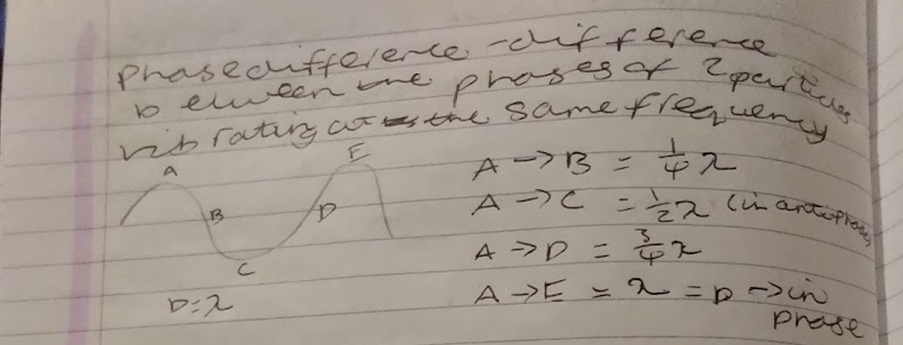 phase difference - difference
between the phases of 2 particles
vibrating at the same frequency
A
B
C
D
E
D=λ
A → B = 1/4 λ
A → C = 1/2 λ (in antiphase)
A → D = 3/4 λ
A → E = λ = D → in
phase